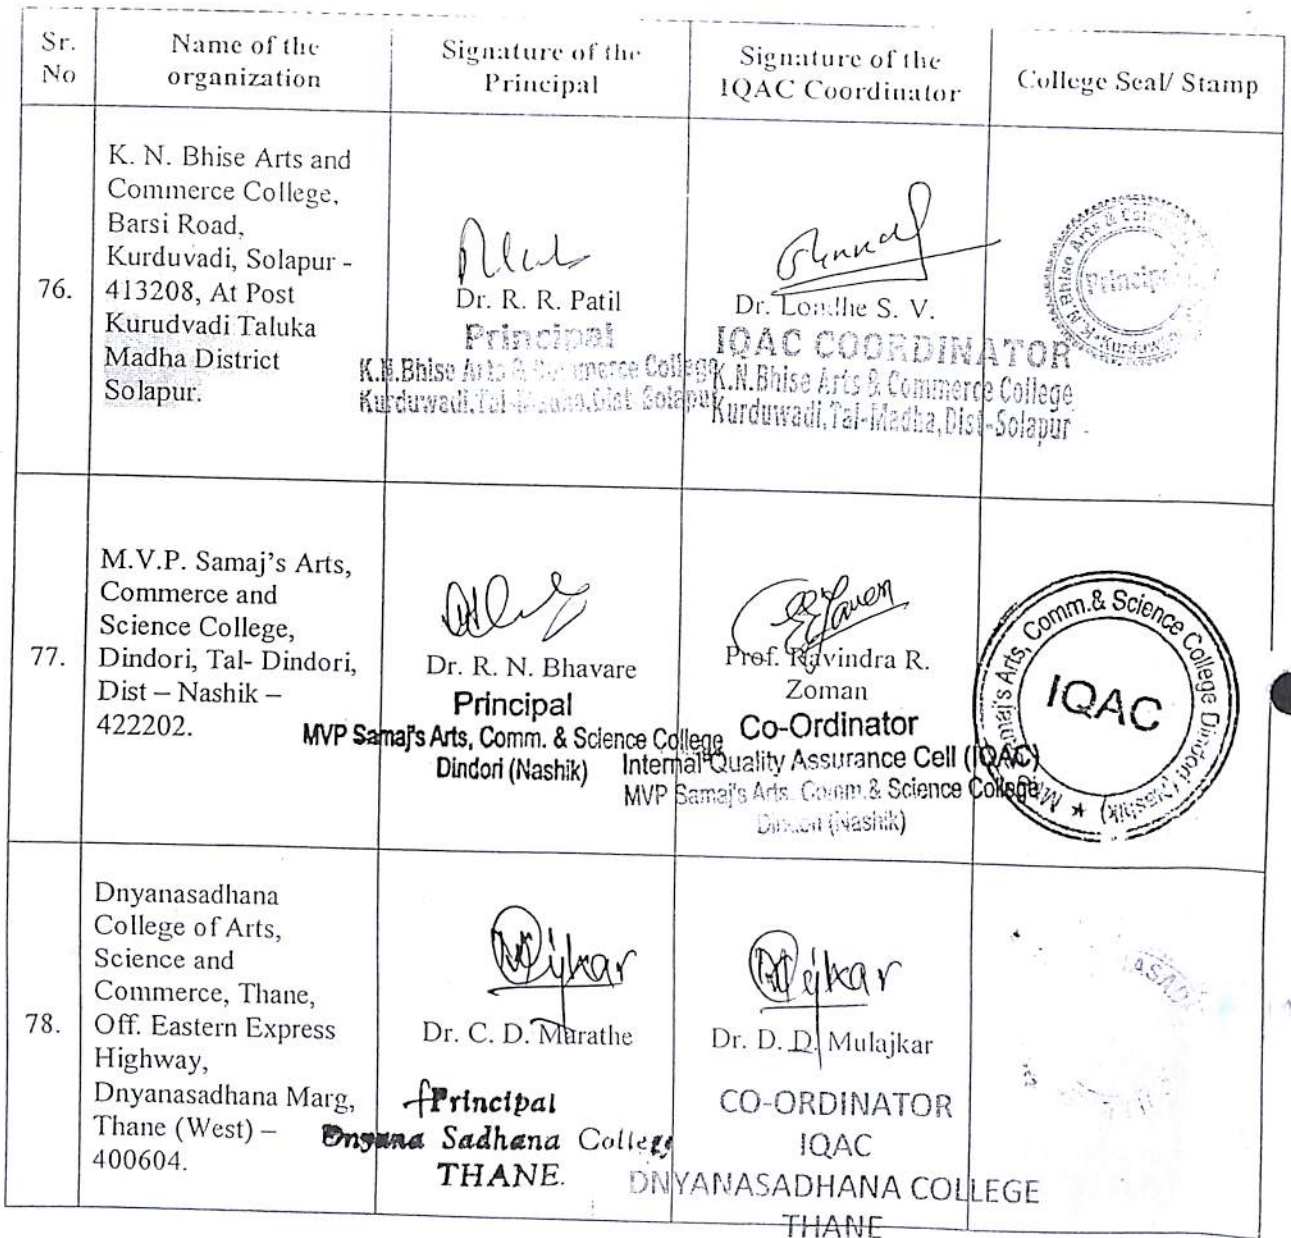 Sr.
No
Name of the
organization
Signature of the
Principal
Signature of the
IQAC Coordinator
College Seal/ Stamp
76.
K. N. Bhise Arts and
Commerce College,
Barsi Road,
Kurduvadi, Solapur -
413208, At Post
Kurudvadi Taluka
Madha District
Solapur.
Dr. R. R. Patil
Principal
K.N.Bhise Arts & Commerce College
Kurduwadi,Tal-Madha,Dist-Solapur
Dr. Londhe S. V.
IQAC COORDINATOR
K.N.Bhise Arts & Commerce College
Kurduwadi,Tal-Madha,Dist-Solapur
K.N.Bhise Arts &
Principal
77.
M.V.P. Samaj's Arts,
Commerce and
Science College,
Dindori, Tal- Dindori,
Dist – Nashik –
422202.
Dr. R. N. Bhavare
Principal
MVP Samaj's Arts, Comm. & Science College
Dindori (Nashik)
Prof. Ravindra R.
Zoman
Co-Ordinator
Internal Quality Assurance Cell (IQAC)
MVP Samaj's Arts, Comm.& Science College
Dindori (Nashik)
MVP Samaj's Arts, Comm.& Science College Dindori (Nashik) ★
IQAC
78.
Dnyanasadhana
College of Arts,
Science and
Commerce, Thane,
Off. Eastern Express
Highway,
Dnyanasadhana Marg,
Thane (West) –
400604.
Dr. C. D. Marathe
Principal
Dnyana Sadhana College
THANE.
Dr. D. D. Mulajkar
CO-ORDINATOR
IQAC
DNYANASADHANA COLLEGE
THANE